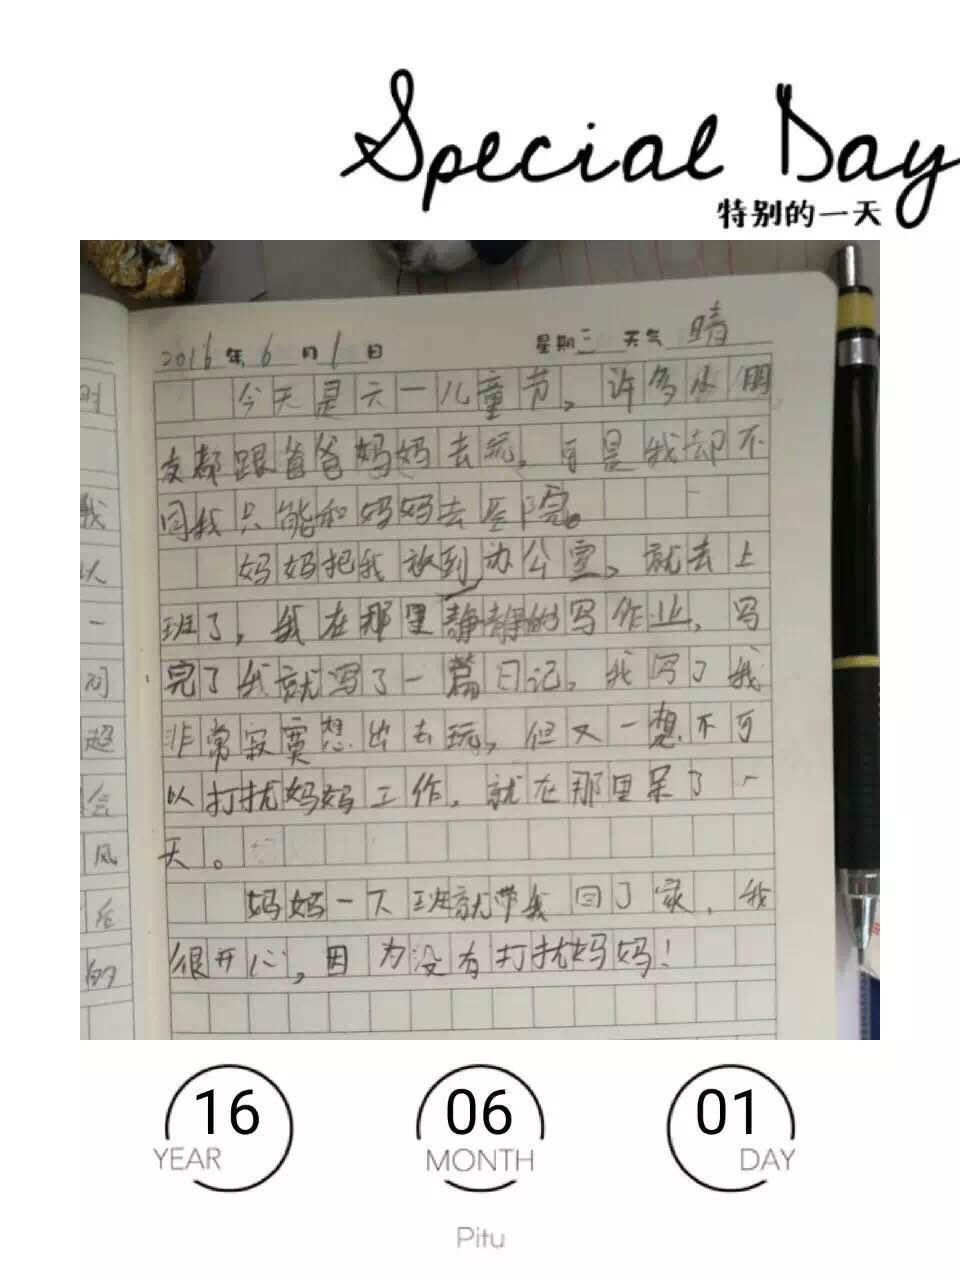 Special Day
特别的一天
2016年6月1日 星期三 天气 晴
今天是六一儿童节，许多小朋
友都跟爸爸妈妈去玩，可是我却不
同我只能和妈妈去医院。
妈妈把我放到办公室，就去上
班了，我在那里静静的写作业，写
完了我就写了一篇日记，我写了我
非常寂寞想出去玩，但又一想不可
以打扰妈妈工作，就在那里呆了一
天。
妈妈一下班就带我回了家，我
很开心，因为没有打扰妈妈！
时
我
以
一
问
超
会
风
在
的
16 06 01
YEAR MONTH DAY
Pitu